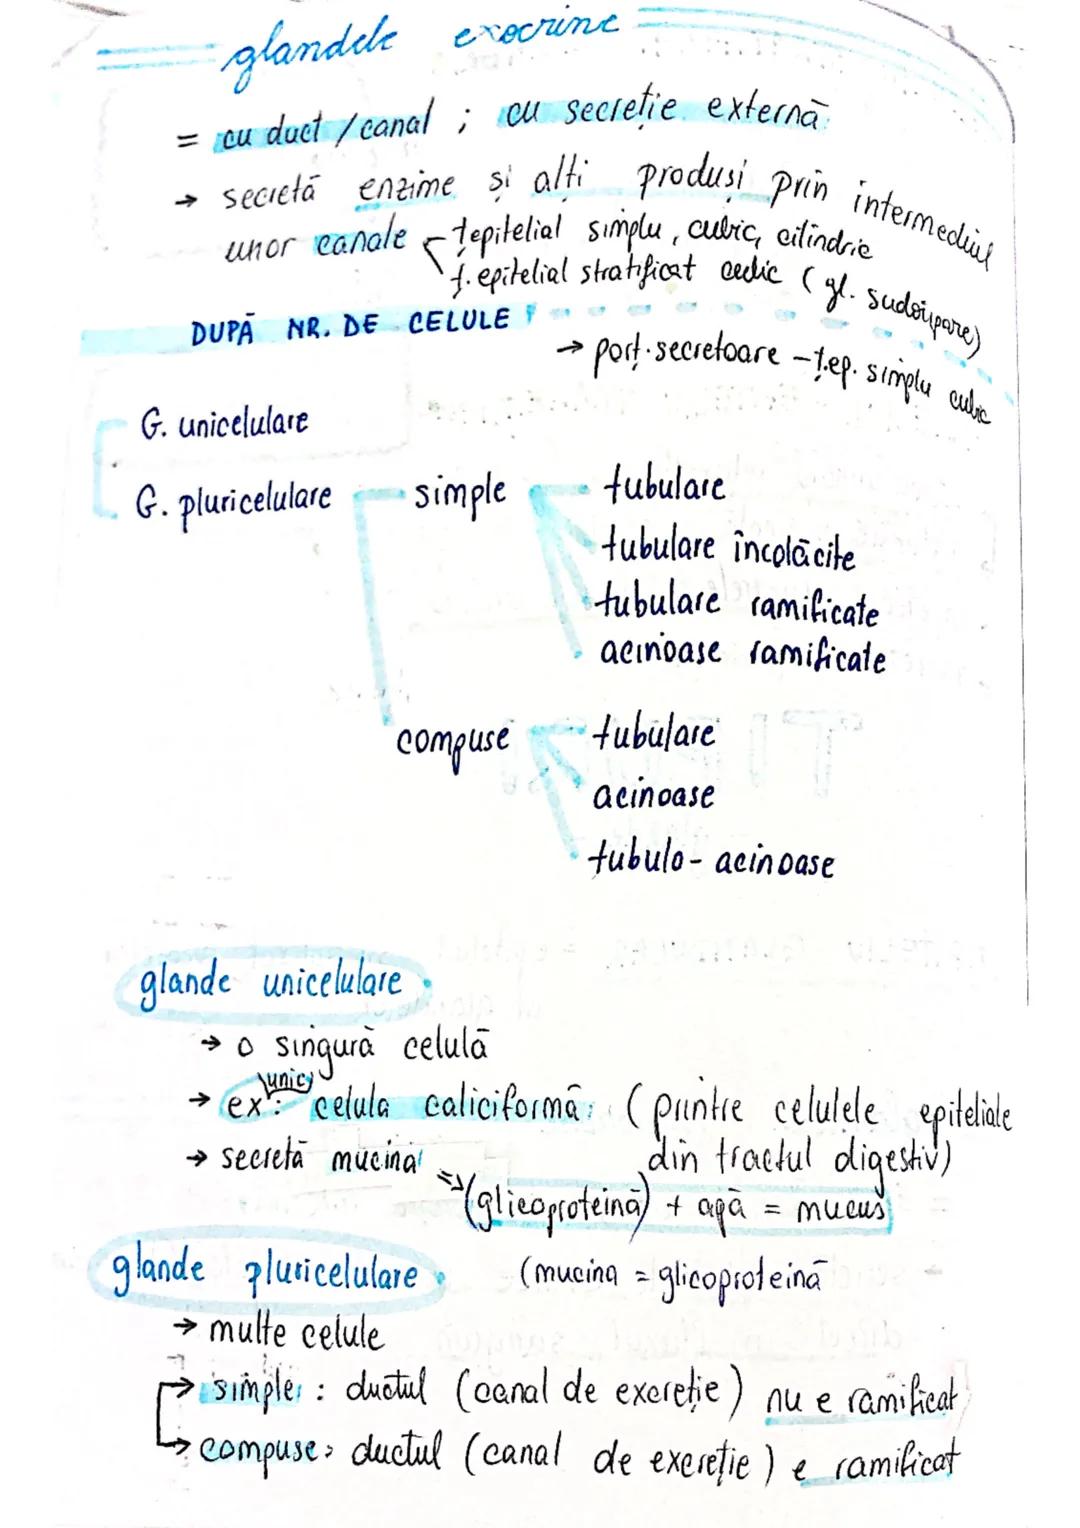 glandele exocrine
= cu duct / canal ; cu secreție externă
→ secretă enzime și alți produși prin intermediul
unor canale țepitelial simplu, cubic, cilindric
ț. epitelial stratificat cubic (gl. sudoripare)
DUPĂ NR. DE CELULE
→ porț. secretoare - ț.ep. simplu cubic
G. unicelulare
G. pluricelulare simple tubulare
tubulare încolăcite
tubulare ramificate
acinoase ramificate
compuse tubulare
acinoase
tubulo-acinoase
glande unicelulare
→ o singură celulă
unic
→ ex: celula caliciformă (printre celulele epiteliale
din tractul digestiv)
→ secretă mucina
=> (glicoproteină) + apă = mucus
glande pluricelulare (mucina = glicoproteină
→ multe celule
→ simple: ductul (canal de excreție) nu e ramificat
→ compuse: ductul (canal de excreție) e ramificat